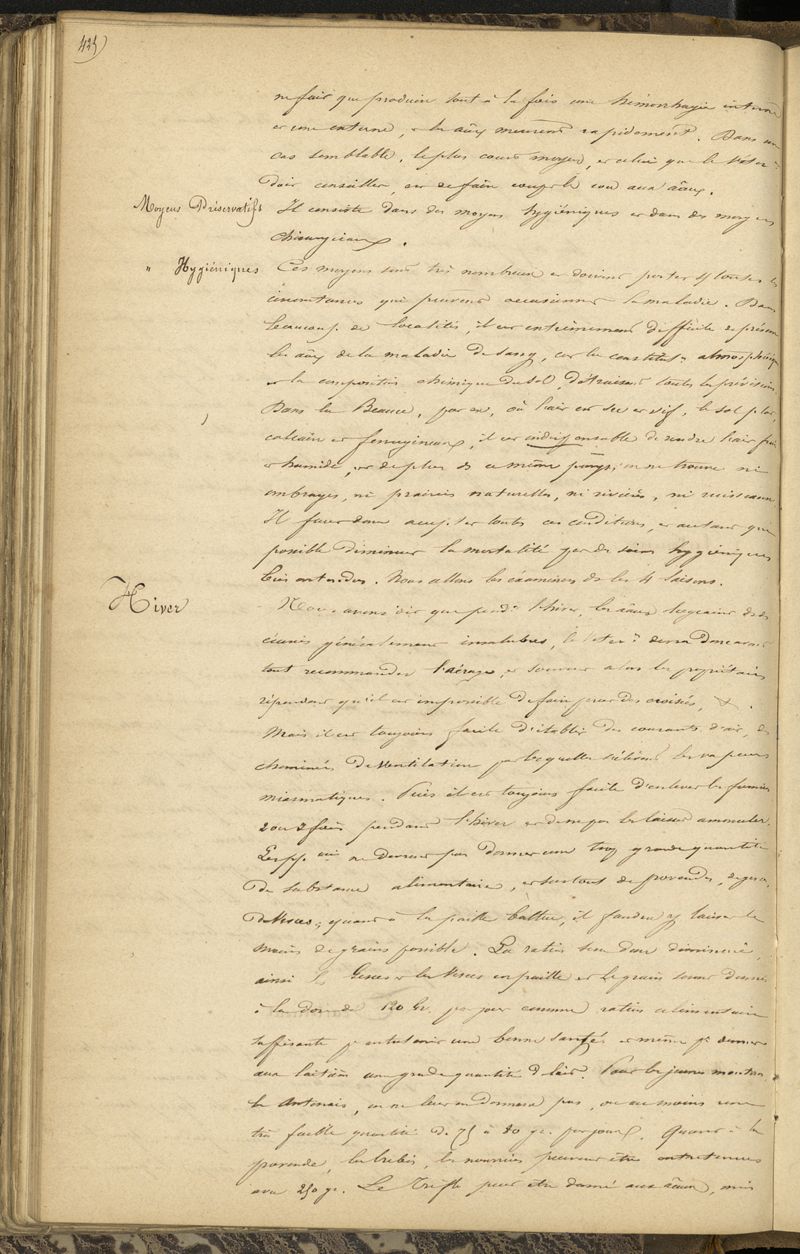 425)
ne fait que produire tout à la fois une hémorrhagie interne
et une externe, et les aux meurent rapidement. Dans un
cas semblable, le plus court moyen, et celui que le Vétér
doit conseiller, est de faire couper le cou aux aux.
Moyens Préservatifs Il consiste dans des moyens hygiéniques et dans des moyens
chirurgicaux.
" Hygiéniques Ces moyens sont très nombreux et doivent porter s/ toutes les
circonstances qui peuvent occasionner la maladie. Dans
beaucoup de localités, il est extrêmement difficile de préserver
les aux de la maladie de sang, car les constitut. atmosphérique
et la composition chimique du sol, détruisent toutes les prévisions
Dans la Beauce, par ex, où l'air est sec et vif, le sol
calcaire et ferrugineux, il est indispensable de rendre l'air frais
et humide, et de plus ds ce même pays, on ne trouve ni
ombrages, ni prairies naturelles, ni rivières, ni ruisseaux
Il faut donc accepter toutes ces conditions, et autant que
possible diminuer la mortalité par des soins hygiéniques
bien entendus. Nous allons les examiner ds les 4 saisons.
Hiver Nous avons dit que pendt l'hiver, les aux logeaient ds des
écuries généralement insalubres, le devra donc avant
tout recommander l'aérage, et souvent alors les propriétaires
répondent qu'il est impossible de faire percer des croisées, &.
Mais il est toujours facile d'établir des courants d'air, des
cheminées de ventilation par lesquelles s'élèvent les vapeurs
miasmatiques. Puis il est toujours facile d'enlever les fumiers
2 ou 3 fois pendant l'hiver et de ne pas les laisser amonceler.
Les pp. ne devront pas donner une trop grande quantité
de substance alimentaire, et surtout de provendes, de gesse,
de Vesces; quant à la paille battue, il faudra y laisser le
moins de grains possible. La ration sera donc diminuée,
ainsi les Gesces et les Vesces en paille et le grain seront donnés
à la dose de 120 Gr. par jour comme ration alimentaire
suffisante pr entretenir une bonne santé et même pr donner
aux laitières une grande quantité de lait. Pour les jeunes moutons
les Antenais, on ne leur en donnera pas, ou au moins une
très faible quantité de 75 à 80 gr. par jour. Quant à la
provende, les brebis, les nourrices peuvent être entretenues
avec 250 gr. Le Trèfle peut être donné aux aux, mais